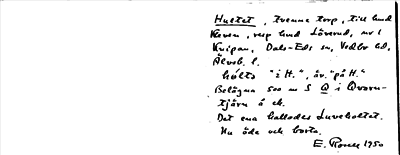 Hultet, tvenne torp, till lund
Kasen, resp lund Lövrud, nr 1
Knipan, Dals-Eds sn, Vedbo hd,
Älvsb. l.
kolts "i H.", äv. "på H."
Belägna 500 m S Q i Qvarn-
tjärn å ek.
Det ena kallades Luveholtet.
Nu öde och borta.
E. Rosell 1950